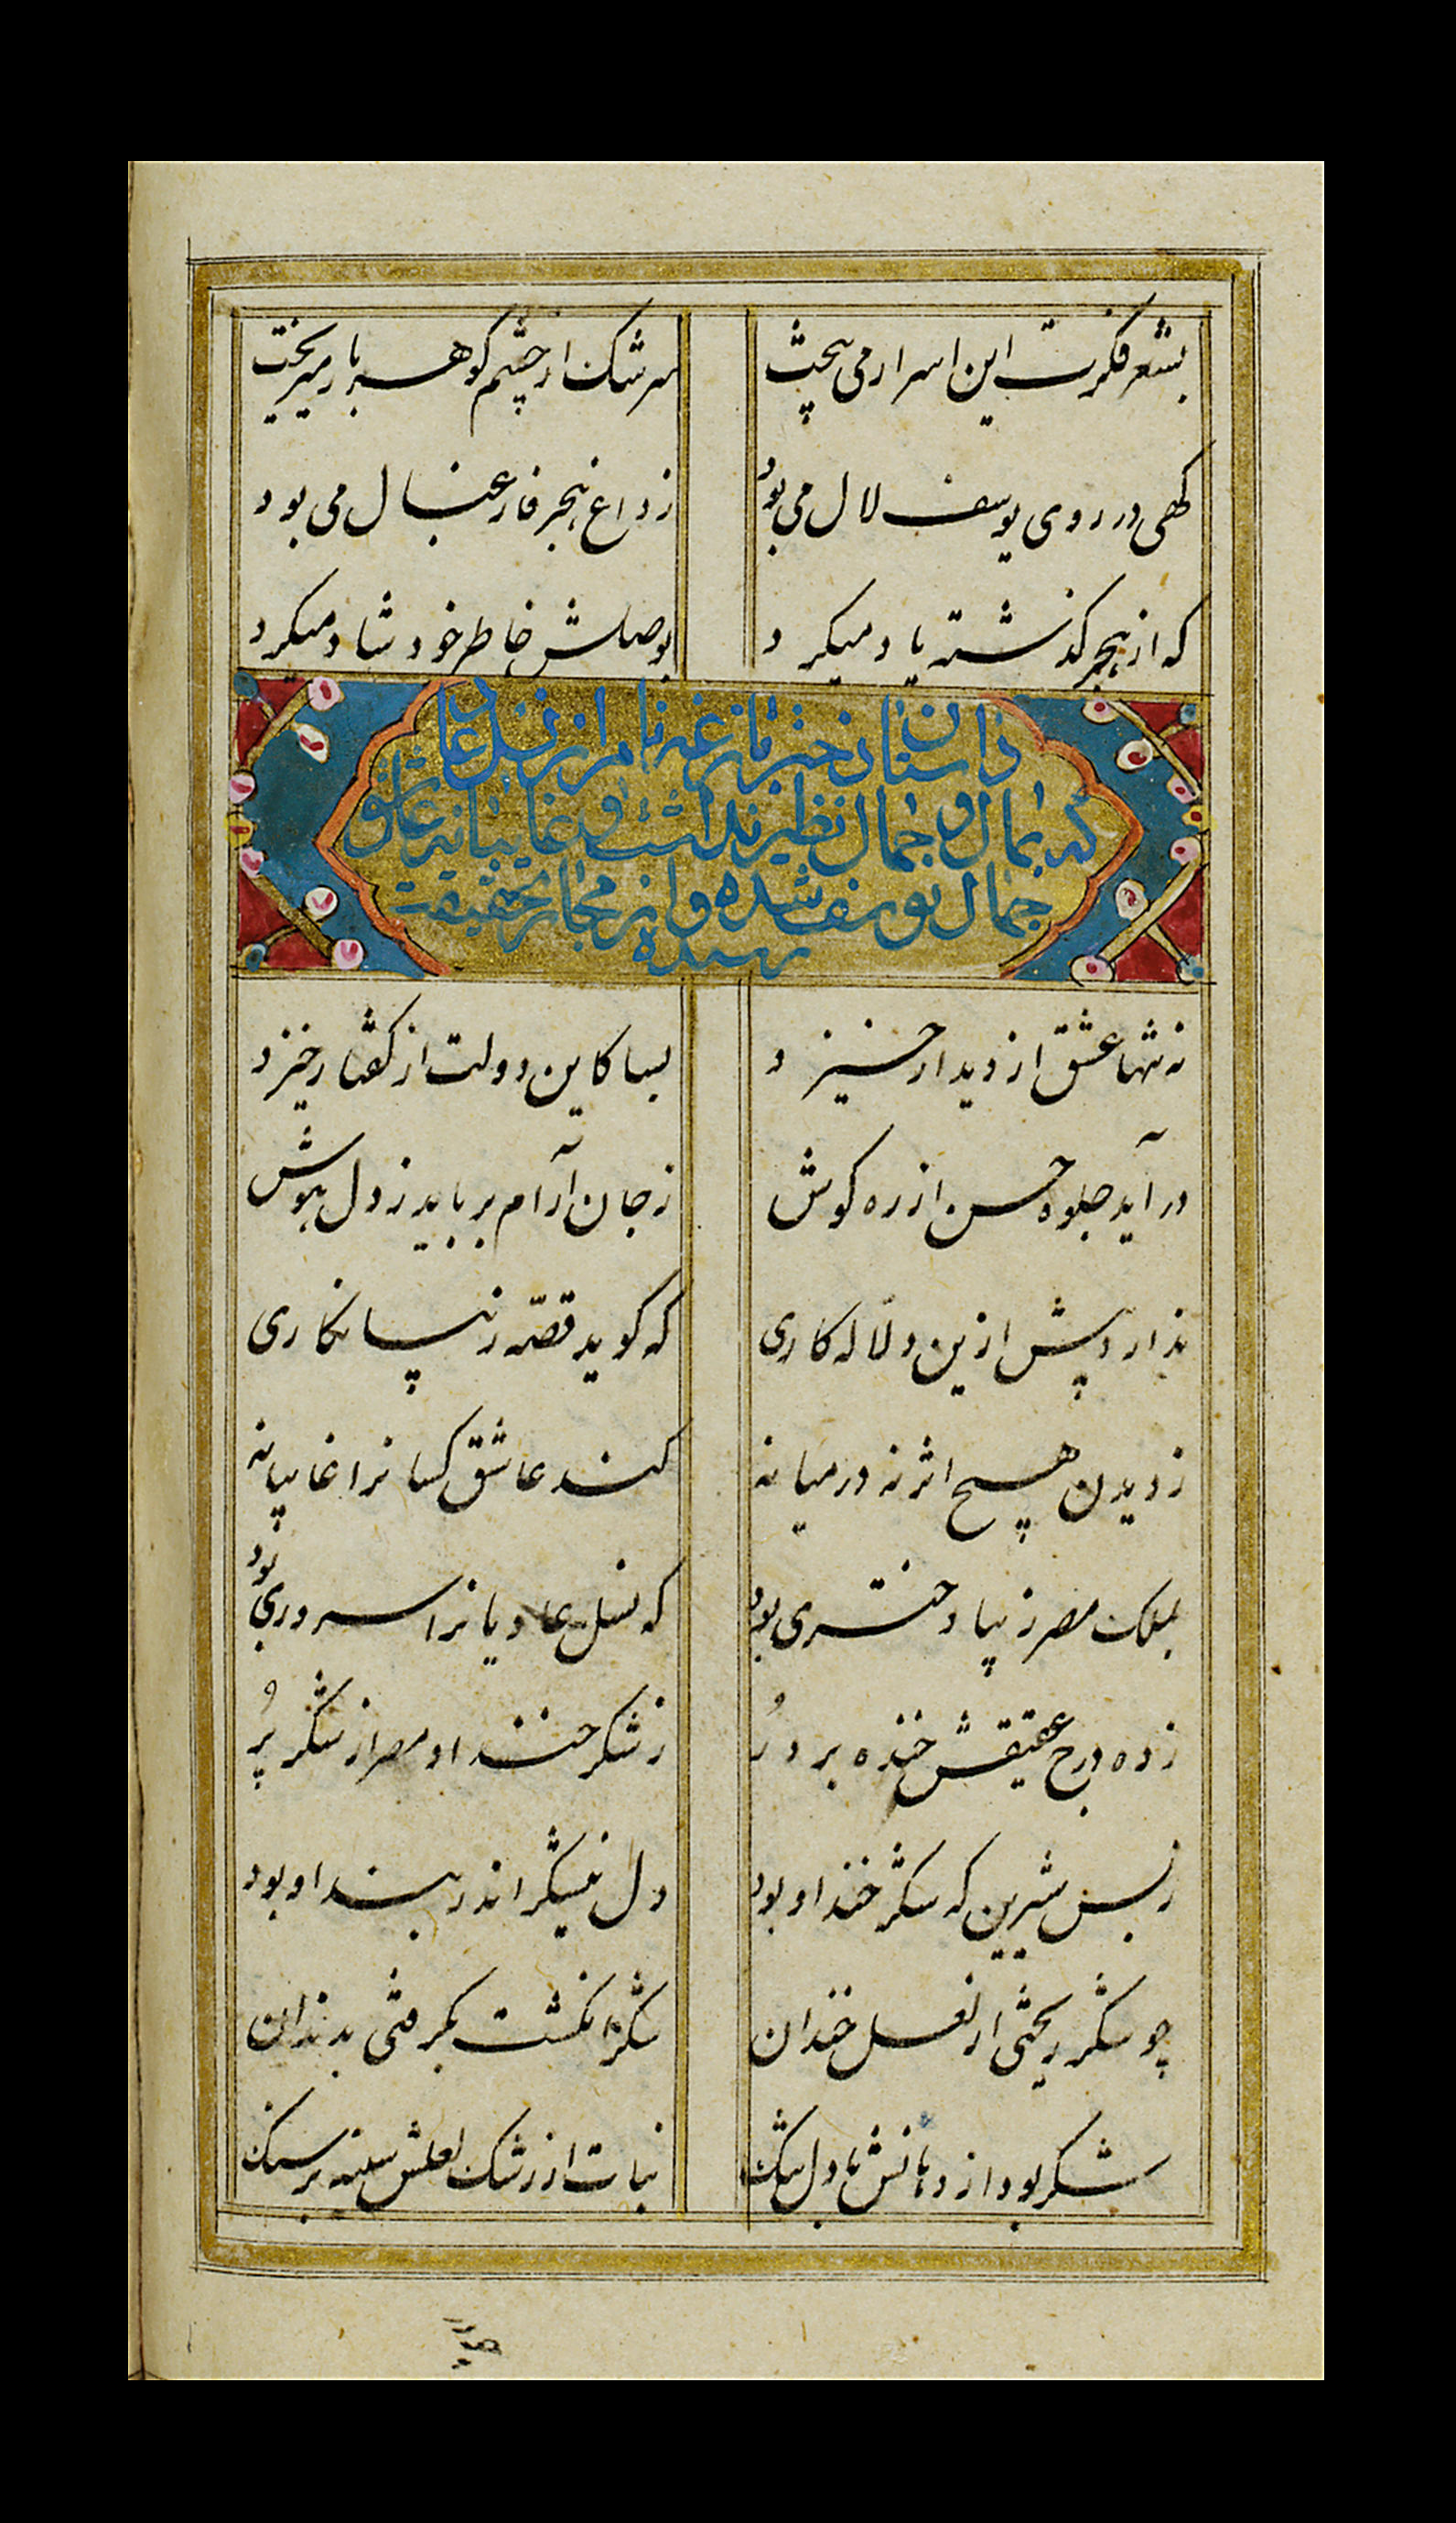 بشعر فکرت این اسرار می پخت سرشک از چشم کوهر بار میریخت
کهی در روی یوسف لال می بود ز داغ هجر فارغ بال می بود
که از هجر کذشته یاد میکرد بوصلش خاطر خود شاد میکرد
داستان دختر بازغه نام از نسل عاد
که بمال و جمال نظیر نداشت و غایبانه عاشق
جمال یوسف شده و از مجاز بحقیقت
رسیده
نه تنها عشق از دیدار خیزد بسا کاین دولت از کفتار خیزد
در آید جلوه حسن از ره کوش ز جان آرام برباید ز دل هوش
ندارد پیش ازین دلّاله کاری که کوید قصّه زیبا نکاری
ز دیدن هیچ اثر نه در میانه کند عاشق کسانرا غایبانه
بملک مصر زیبا دختری بود که نسل عادیانرا سروری بود
زده درج عقیقش خنده بر دُر ز شکر خند او مصر از شکر پُر
ز بس شیرین که شکر خند او بود دل نیشکر اندر بند او بود
چو شکر ریختی از لعل خندان شکر انکشت بکرفتی بدندان
شکر بود از دهانش با دل تنک نبات از رشک لعلش شیشه بر سنک